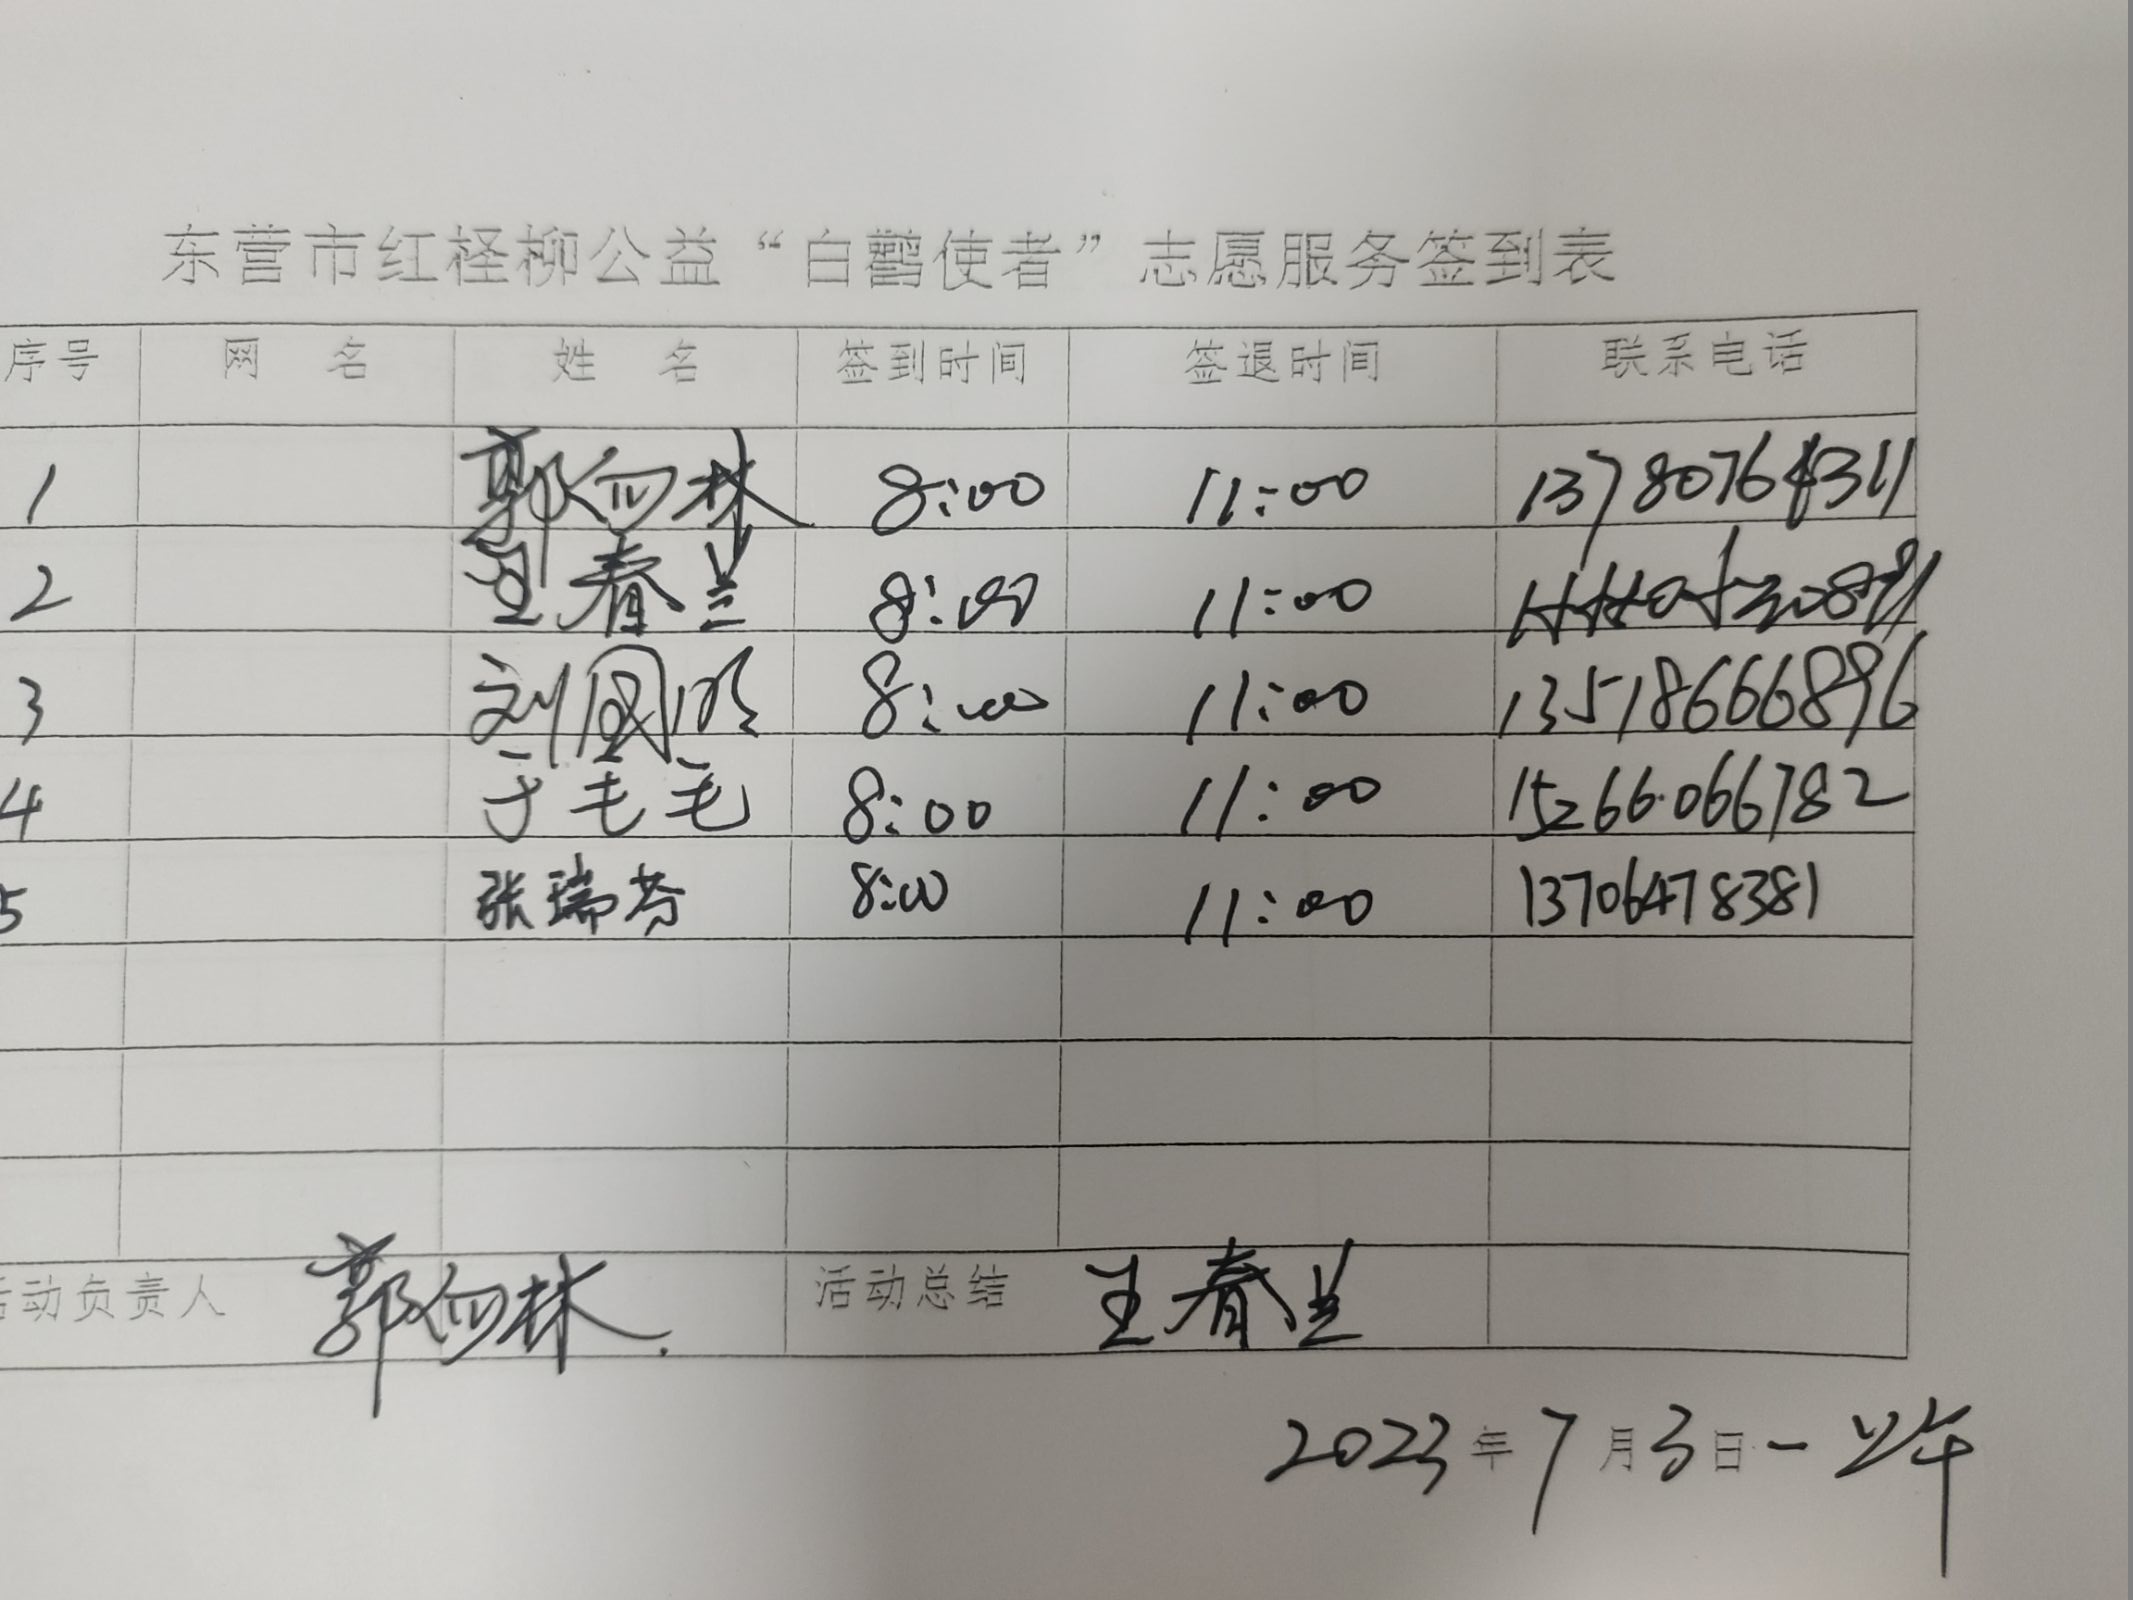 东营市红柽柳公益“白鹳使者”志愿服务签到表
序号 网 名 姓 名 签到时间 签退时间 联系电话
1 郭向林 8:00 11:00 13780764311
2 王春兰 8:00 11:00
3 刘国明 8:00 11:00 13518666896
4 于毛毛 8:00 11:00 15266066782
5 张瑞芬 8:00 11:00 13706478381
活动负责人 郭向林 活动总结 王春兰
2023年7月3日一上午